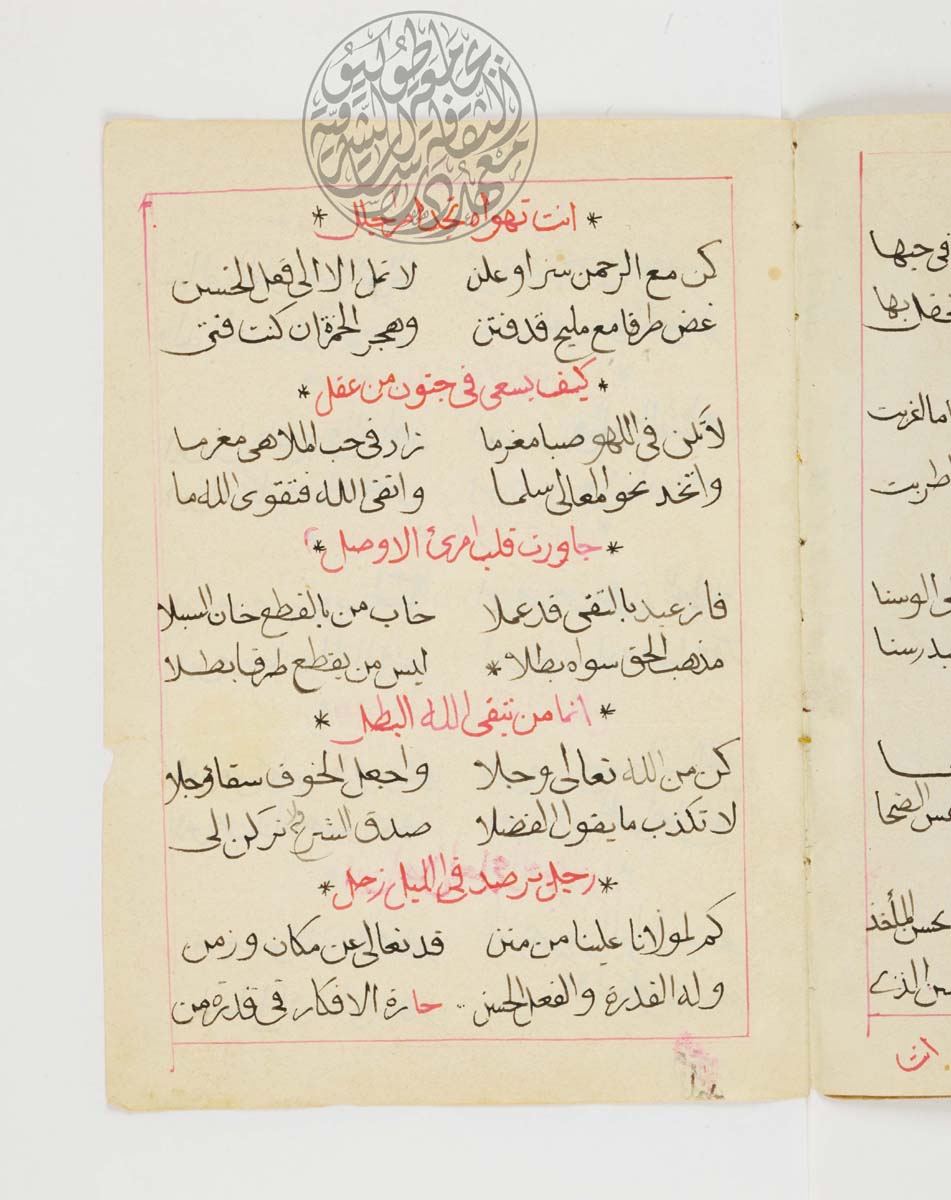 * انت تهواه تجد امرا جلل *
كن مع الرحمن سرا وعلن لا تمل الا الى فعل الحسن
غض طرفا مع مليح قد فتن وهجر الخمرة ان كنت فتى
* كيف يسعى في جنون من عقل *
لا تكن في اللهو صبا مغرما زاد في حب الملاهى مغرما
واتخد نحو المعالى سلما واتقى الله فتقوى الله ما
* جاورت قلب امرئ الا وصل *
فاز عبد بالتقى قد عملا خاب من بالقطع خان السبلا
مذهب الحق سواه بطلا * ليس من يقطع طرقا بطلا
* انما من يتقى الله البطل *
كن من الله تعالى وجلا واجعل الخوف سقا وجلا
لا تكذب ما يقول الفضلا صدق الشرع تركن الى
* رجل يرصد في الليل زحل *
كم لمولانا علينا من منن قد تعالى عن مكان وزمن
وله القدرة والفعل الحسن حارة الافكار في قدرة من
في حبها
بها
ما لغربت
طربت
الوسنا
الضحا
انت